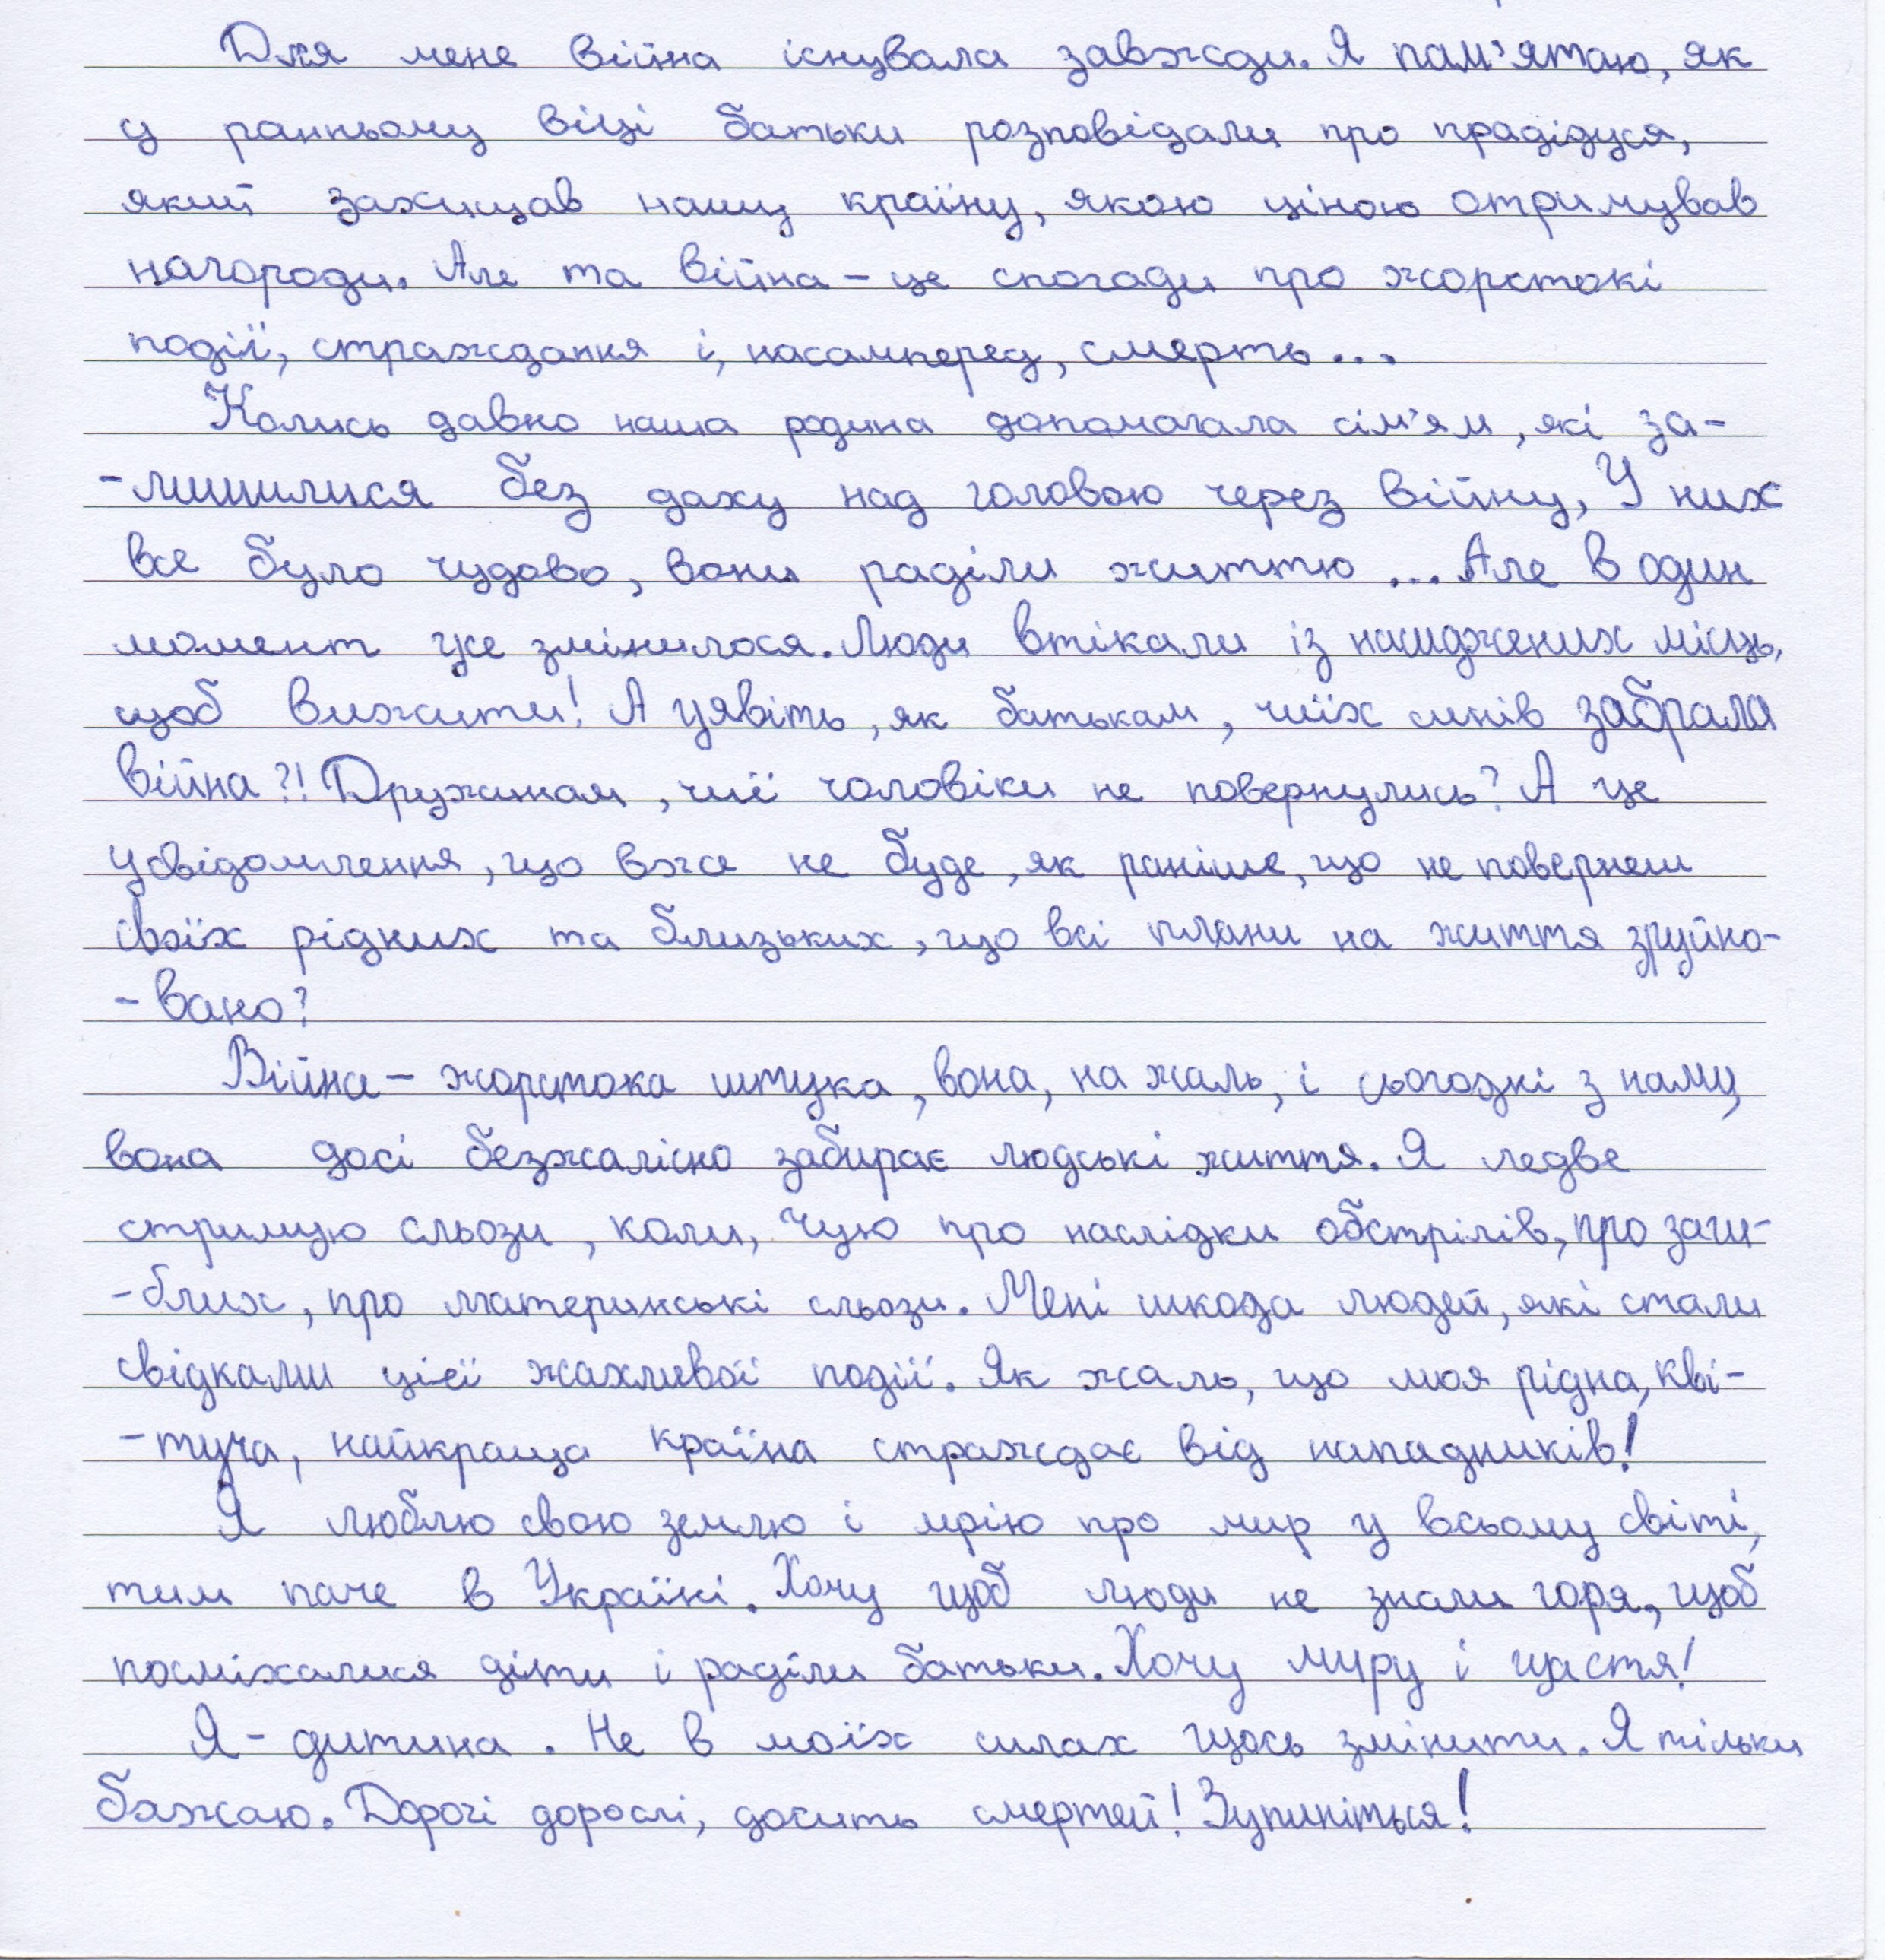 Для мене війна існувала завжди. Я пам'ятаю, як
у ранньому віці батьки розповідали про прадідуся,
який захищав нашу країну, якою ціною отримував
нагороди. Але та війна – це спогади про жорстокі
події, страждання і, насамперед, смерть...
Колись давно наша родина допомагала сім'ям, які за-
-лишилися без даху над головою через війну, У них
все було чудово, вони раділи життю ... Але в один
момент уже змінилося. Люди втікали із насиджених місць,
щоб вижити! А уявіть, як батькам, чиїх синів забрала
війна?!! Дружинам, чиї чоловіки не повернулись? А це
усвідомлення, що вже не буде, як раніше, що не повернеш
своїх рідних та близьких, що всі плани на життя зруйно-
-вано?
Війна – жорстока штука, вона, на жаль, і сьогодні з нами,
вона досі безжалісно забирає людські життя. Я ледве
стримую сльози, коли, чую про наслідки обстрілів, про заги-
-блих, про материнські сльози. Мені шкода людей, які стали
свідками цієї жахливої події. Як жаль, що моя рідна, кві-
-туча, найкраща країна страждає від нападників!
Я люблю свою землю і мрію про мир у всьому світі,
тим паче в Україні. Хочу щоб люди не знали горя, щоб
посміхалися діти і раділи батьки. Хочу миру і щастя!
Я – дитина. Не в моїх силах щось змінити. Я тільки
бажаю. Дорогі дорослі, досить смертей! Зупиніться!